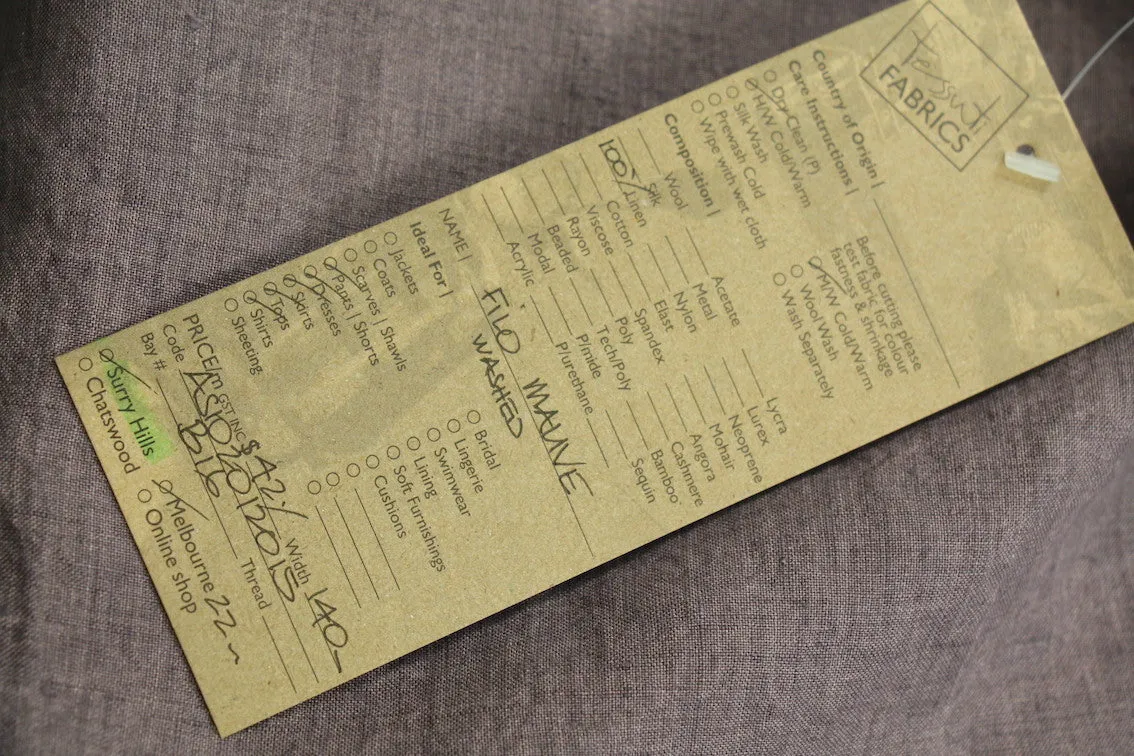 Tessuti
FABRICS
Country of Origin |
Care Instructions |
Dry Clean (P)
H/W Cold/Warm
Silk Wash
Prewash Cold
Wipe with wet cloth
Before cutting please
test fabric for colour
fastness & shrinkage
M/W Cold/Warm
Wool Wash
Wash Separately
Composition |
Wool
Silk
100% Linen
Cotton
Viscose
Rayon
Beaded
Modal
Acrylic
Acetate
Metal
Nylon
Elast
Spandex
Poly
Tech/Poly
P/mide
P/urethane
Lycra
Lurex
Neoprene
Mohair
Angora
Cashmere
Bamboo
Sequin
NAME | FILO MAUVE
WASHED
Ideal For |
Jackets
Coats
Scarves | Shawls
Pants | Shorts
Dresses
Skirts
Tops
Shirts
Sheeting
Bridal
Lingerie
Swimwear
Lining
Soft Furnishings
Cushions
PRICE/m GST INC $42/ Width 140-
Code
Bay # B16 Thread
Surry Hills
Chatswood
Melbourne 22~
Online shop